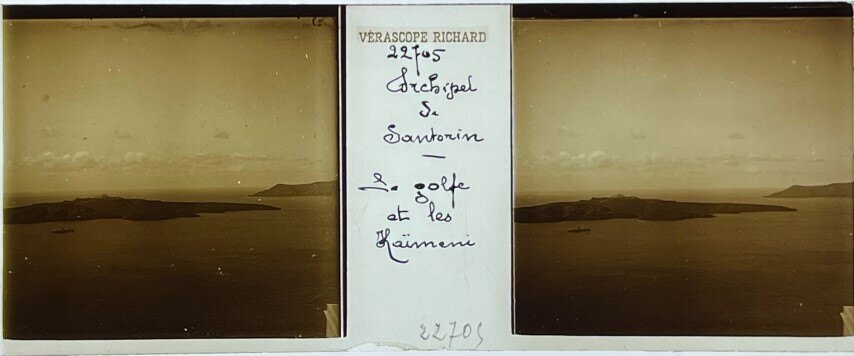 VÉRASCOPE RICHARD
22705
Archipel
de
Santorin
—
Le golfe
et les
Kaïmeni
22705